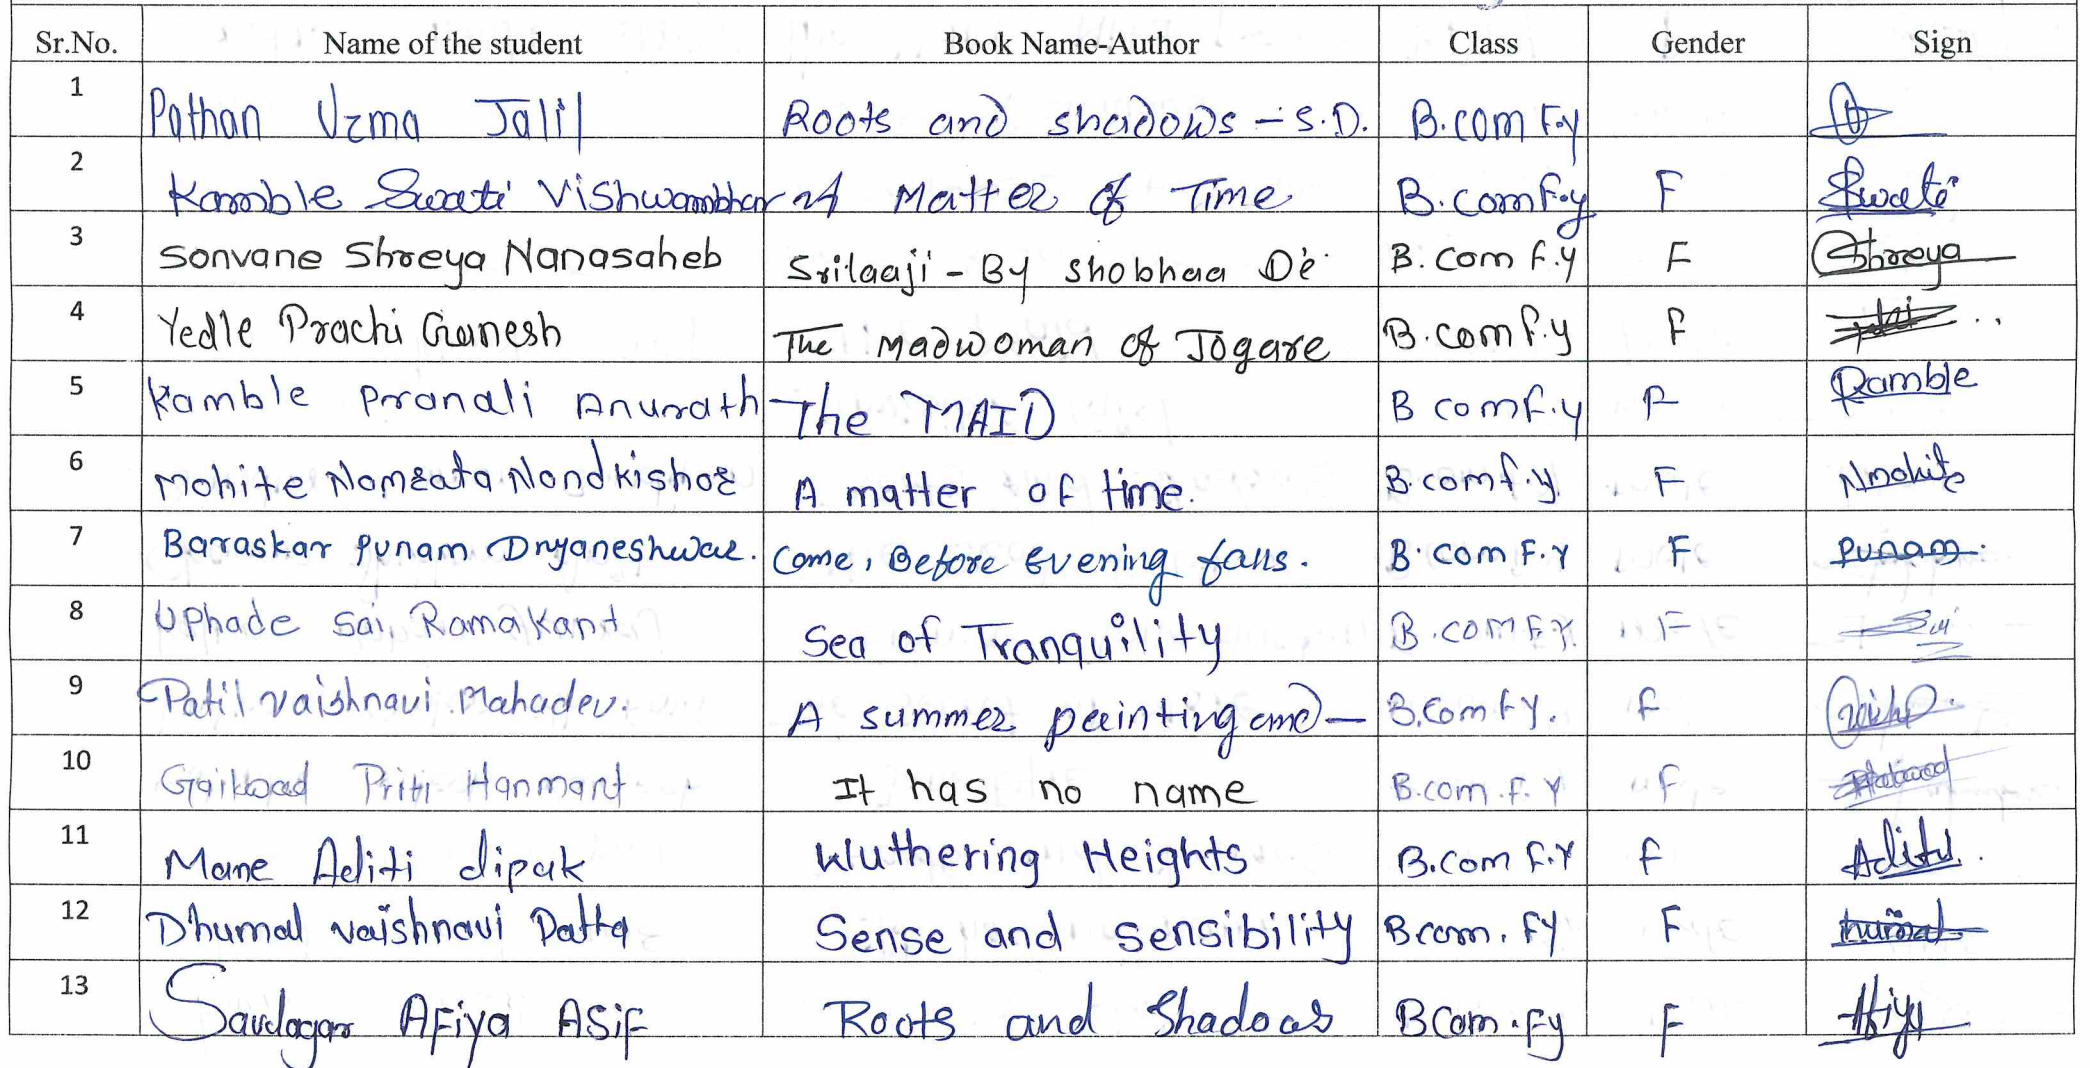 Sr.No. Name of the student Book Name-Author Class Gender Sign
1 Pathan Uzma Jalil Roots and shadows - S.D. B.com F.y
2 Kamble Swati Vishwambhar A Matter of Time B.com F.y F Swati
3 Sonvane Shreya Nanasaheb Srilaaji - By shobhaa De B.com F.y F Shreya
4 Yedle Prachi Ganesh The madwoman of Jogare B.com F.y F
5 Kamble Pranali Anurath The MAID B com F.y F Kamble
6 Mohite Namrata Nandkishor A matter of time. B.com f.y. F Nmohite
7 Baraskar punam Dnyaneshwar. Come, Before Evening falls. B.com F.Y F punam
8 Uphade Sai Ramakant Sea of Tranquility B.com F.Y. F Sai
9 Patil vaishnavi Mahadev. A summer painting and — B.com F.y. F
10 Gaikwad Priti Hanmant It has no name B.com.F.Y F
11 Mane Aditi dipak Wuthering Heights B.com F.Y F Aditi
12 Dhumal vaishnavi Datta Sense and sensibility B.com. Fy F
13 Saudagar AFiya ASiF Roots and Shadoas BCom.Fy F